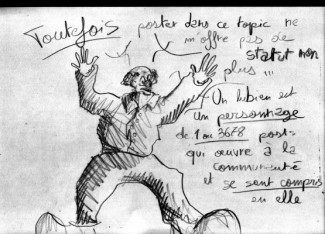 Toutefois
poster dans ce topic ne
m'offre pas de
statut non
plus !!!
- Un lubien est
un personnage
de 1 ou 3678 posts
qui œuvre à la
communauté
et se sent compris
en elle